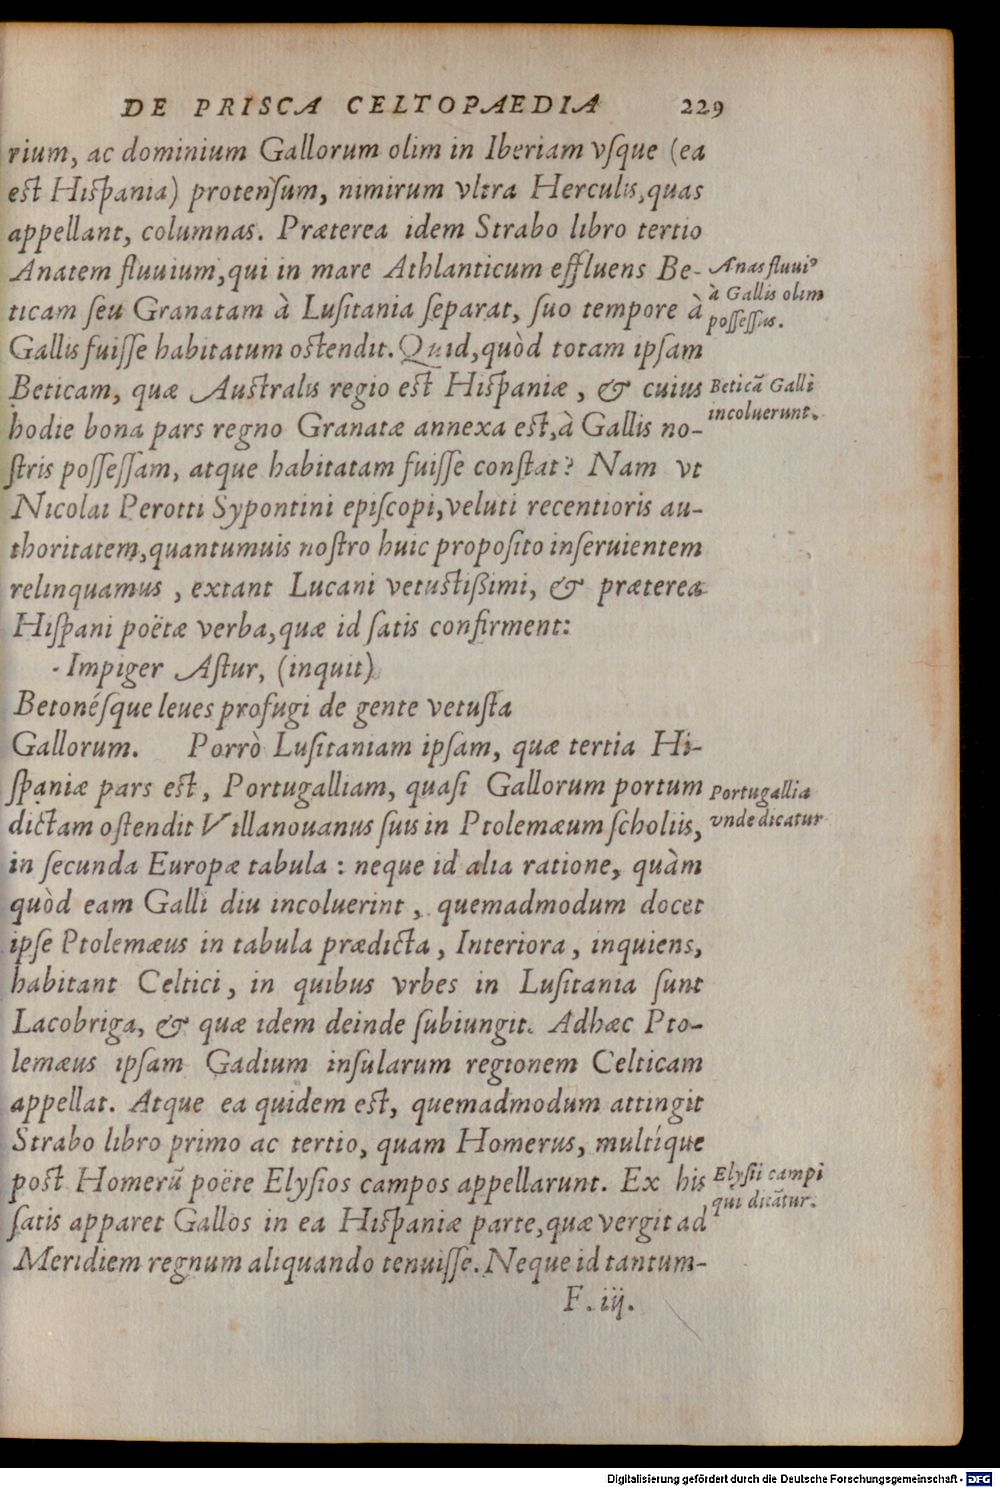 DE PRISCA CELTOPAEDIA 229
rium, ac dominium Gallorum olim in Iberiam vſque (ea
est Hiſpania) protenſum, nimirum vltra Herculis, quas
appellant, columnas. Præterea idem Strabo libro tertio
Anatem fluuium, qui in mare Athlanticum effluens Be-
ticam ſeu Granatam à Luſitania ſeparat, ſuo tempore à
Gallis fuiſſe habitatum oſtendit. Quid, quòd totam ipſam
Beticam, quæ Auſtralis regio est Hiſpaniæ, & cuius
hodie bona pars regno Granatæ annexa est, à Gallis no-
ſtris poſſeſſam, atque habitatam fuiſſe conſtat? Nam vt
Nicolai Perotti Sypontini epiſcopi, veluti recentioris au-
thoritatem, quantumuis noſtro huic propoſito inſeruientem
relinquamus, extant Lucani vetuſtißimi, & præterea
Hiſpani poëtæ verba, quæ id ſatis confirment:
Impiger Aſtur, (inquit)
Betonéſque leues profugi de gente vetuſta
Gallorum. Porrò Luſitaniam ipſam, quæ tertia Hi-
ſpaniæ pars est, Portugalliam, quaſi Gallorum portum
dictam oſtendit Villanouanus ſuis in Ptolemæum ſcholiis,
in ſecunda Europæ tabula: neque id alia ratione, quàm
quòd eam Galli diu incoluerint, quemadmodum docet
ipſe Ptolemæus in tabula prædicta, Interiora, inquiens,
habitant Celtici, in quibus vrbes in Luſitania ſunt
Lacobriga, & quæ idem deinde ſubiungit. Adhæc Pto-
lemæus ipſam Gadium inſularum regionem Celticam
appellat. Atque ea quidem est, quemadmodum attingit
Strabo libro primo ac tertio, quam Homerus, multíque
post Homerū poëte Elyſios campos appellarunt. Ex his
ſatis apparet Gallos in ea Hiſpaniæ parte, quæ vergit ad
Meridiem regnum aliquando tenuiſſe. Neque id tantum-
F. iij.
Anas fluuiꝰ
à Gallis olim
poſſeſſus.
Beticā Galli
incoluerunt.
Portugallia
vnde dicatur
Elyſii campi
qui dicātur.
Digitalisierung gefördert durch die Deutsche Forschungsgemeinschaft - DFG